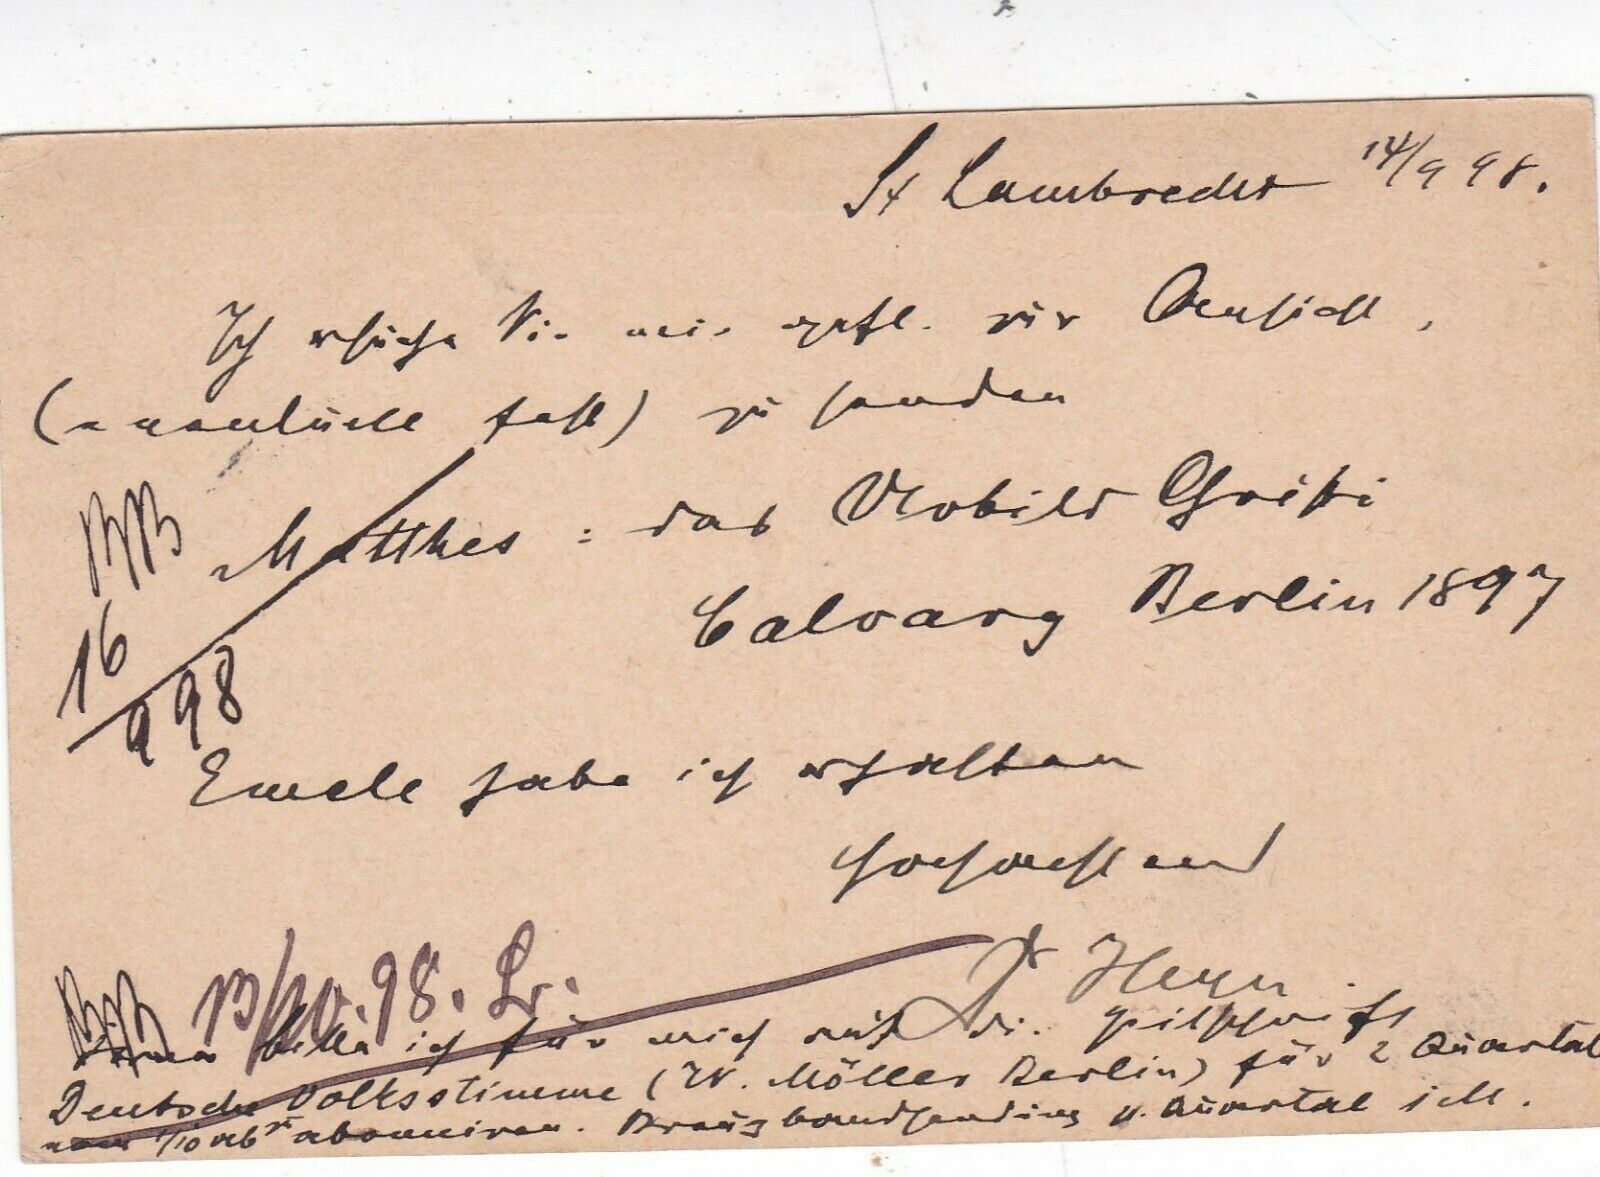 St Lambrecht 14/9 98.
Ich ersuche Sie mir gefl. zur Ansicht,
(eventuell fest) zu senden
Matthes: das Urbild Christi
Calvary Berlin 1897
16/9 98
Emele habe ich erhalten
Hochachtend
Dr Heyn.
13/10. 98. Lr.
bitte ich für mich auf die Zeitschrift
Deutsche Volksstimme (W. Möller Berlin) für 2 Quartal
1/10 abonniren. Kreuzbandsendung u. Quartal